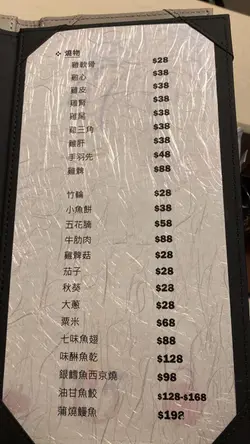 ❖ 燒物
雞軟骨 $28
雞心 $38
雞皮 $38
雞腎 $38
雞尾 $38
雞三角 $38
雞肝 $38
手羽先 $48
雞 $88
竹輪 $28
小魚餅 $38
五花腩 $58
牛肋肉 $88
雞髀菇 $28
茄子 $28
秋葵 $28
大蔥 $28
粟米 $68
七味魚翅 $88
味醂魚乾 $128
銀鱈魚西京燒 $98
油甘魚鮫 $128-$168
蒲燒鰻魚 $198